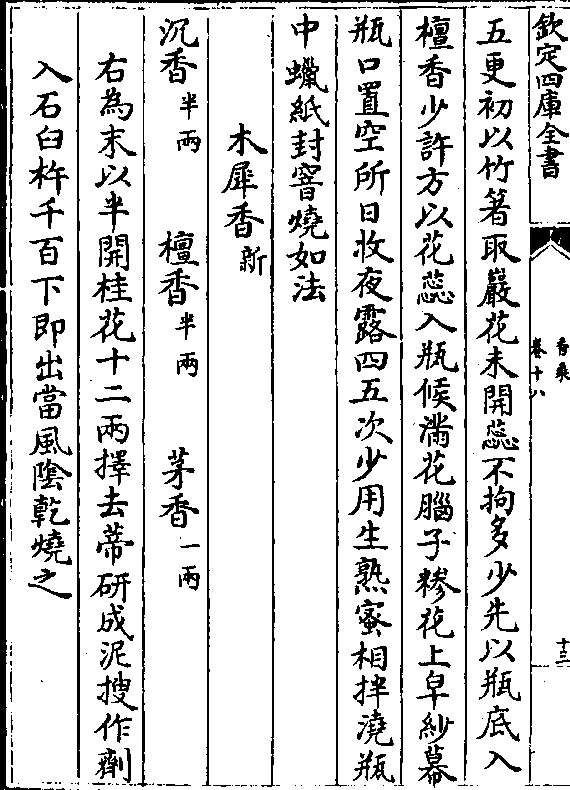 欽定四庫全書
香乘
卷十八
十三
五更初以竹箸取巖花未開蕊不拘多少先以瓶底入
檀香少許方以花蕊入瓶候滿花腦子糝花上皁紗幕
瓶口置空所日收夜露四五次少用生熟蜜相拌澆瓶
中蠟紙封窨燒如法
木犀香新
沉香半兩 檀香半兩 茅香一兩
右為末以半開桂花十二兩擇去蒂研成泥搜作劑
入石臼杵千百下即出當風陰乾燒之